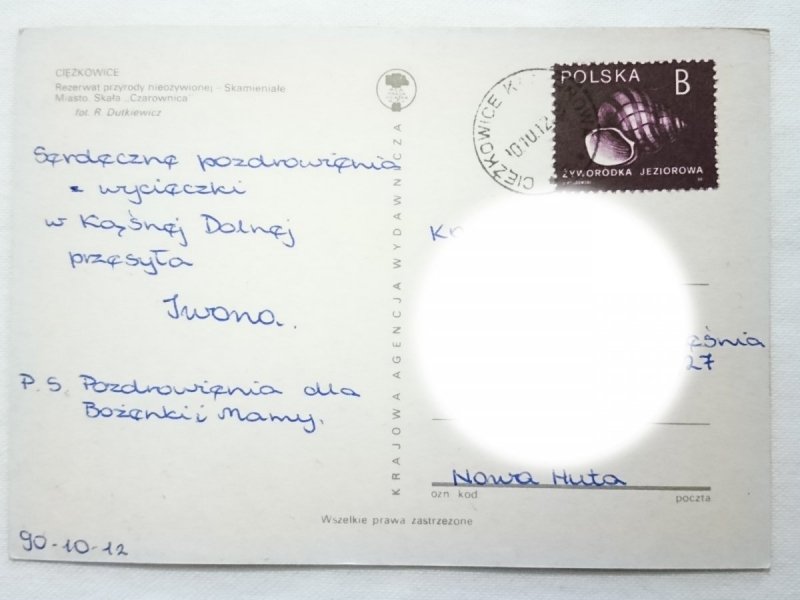 CIĘŻKOWICE
Rezerwat przyrody nieożywionej - Skamieniałe
Miasto. Skała „Czarownica"
fot. R. Dutkiewicz
Serdeczne pozdrowienia
z wycieczki
w Kąśnej Dolnej
przesyła
Iwona.
P.S. Pozdrowienia dla
Bożenki i Mamy.
90-10-12
KRAJOWA AGENCJA WYDAWNICZA
CIĘŻKOWICE
POLSKA B
ŻYWORÓDKA JEZIOROWA
27
Nowa Huta
ozn kod
poczta
Wszelkie prawa zastrzeżone